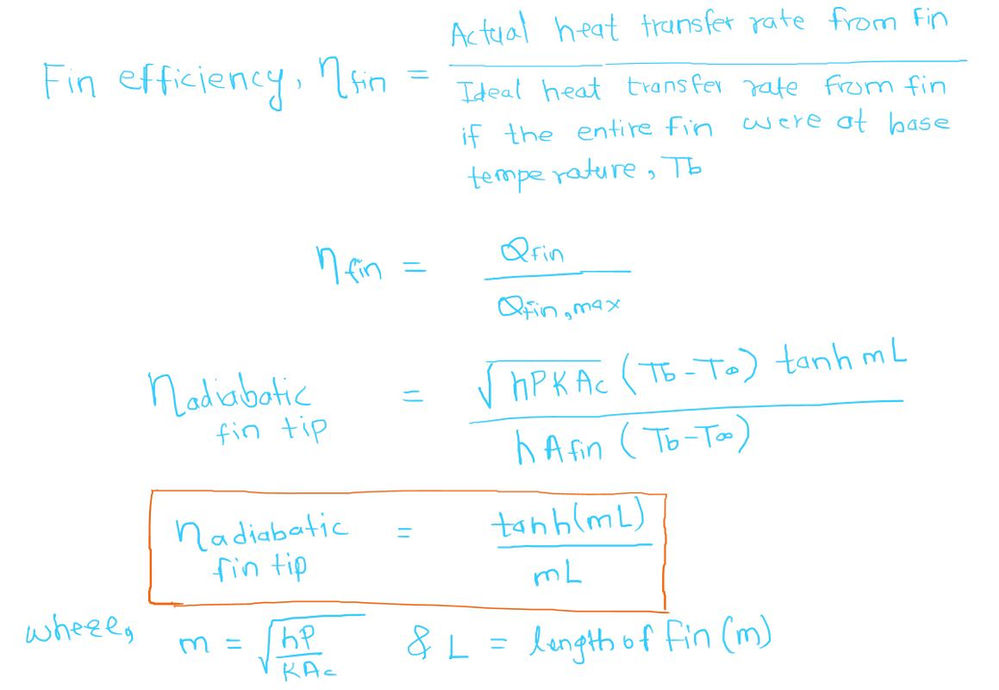 Fin efficiency, ηfin = Actual heat transfer rate from fin
Ideal heat transfer rate from fin
if the entire fin were at base
temperature, Tb
ηfin = Qfin
Qfin,max
ηadiabatic fin tip = √hPKAc (Tb-T∞) tanh mL
hAfin (Tb-T∞)
ηadiabatic fin tip = tanh(mL)
mL
where, m = √hP/KAc & L = length of fin (m)